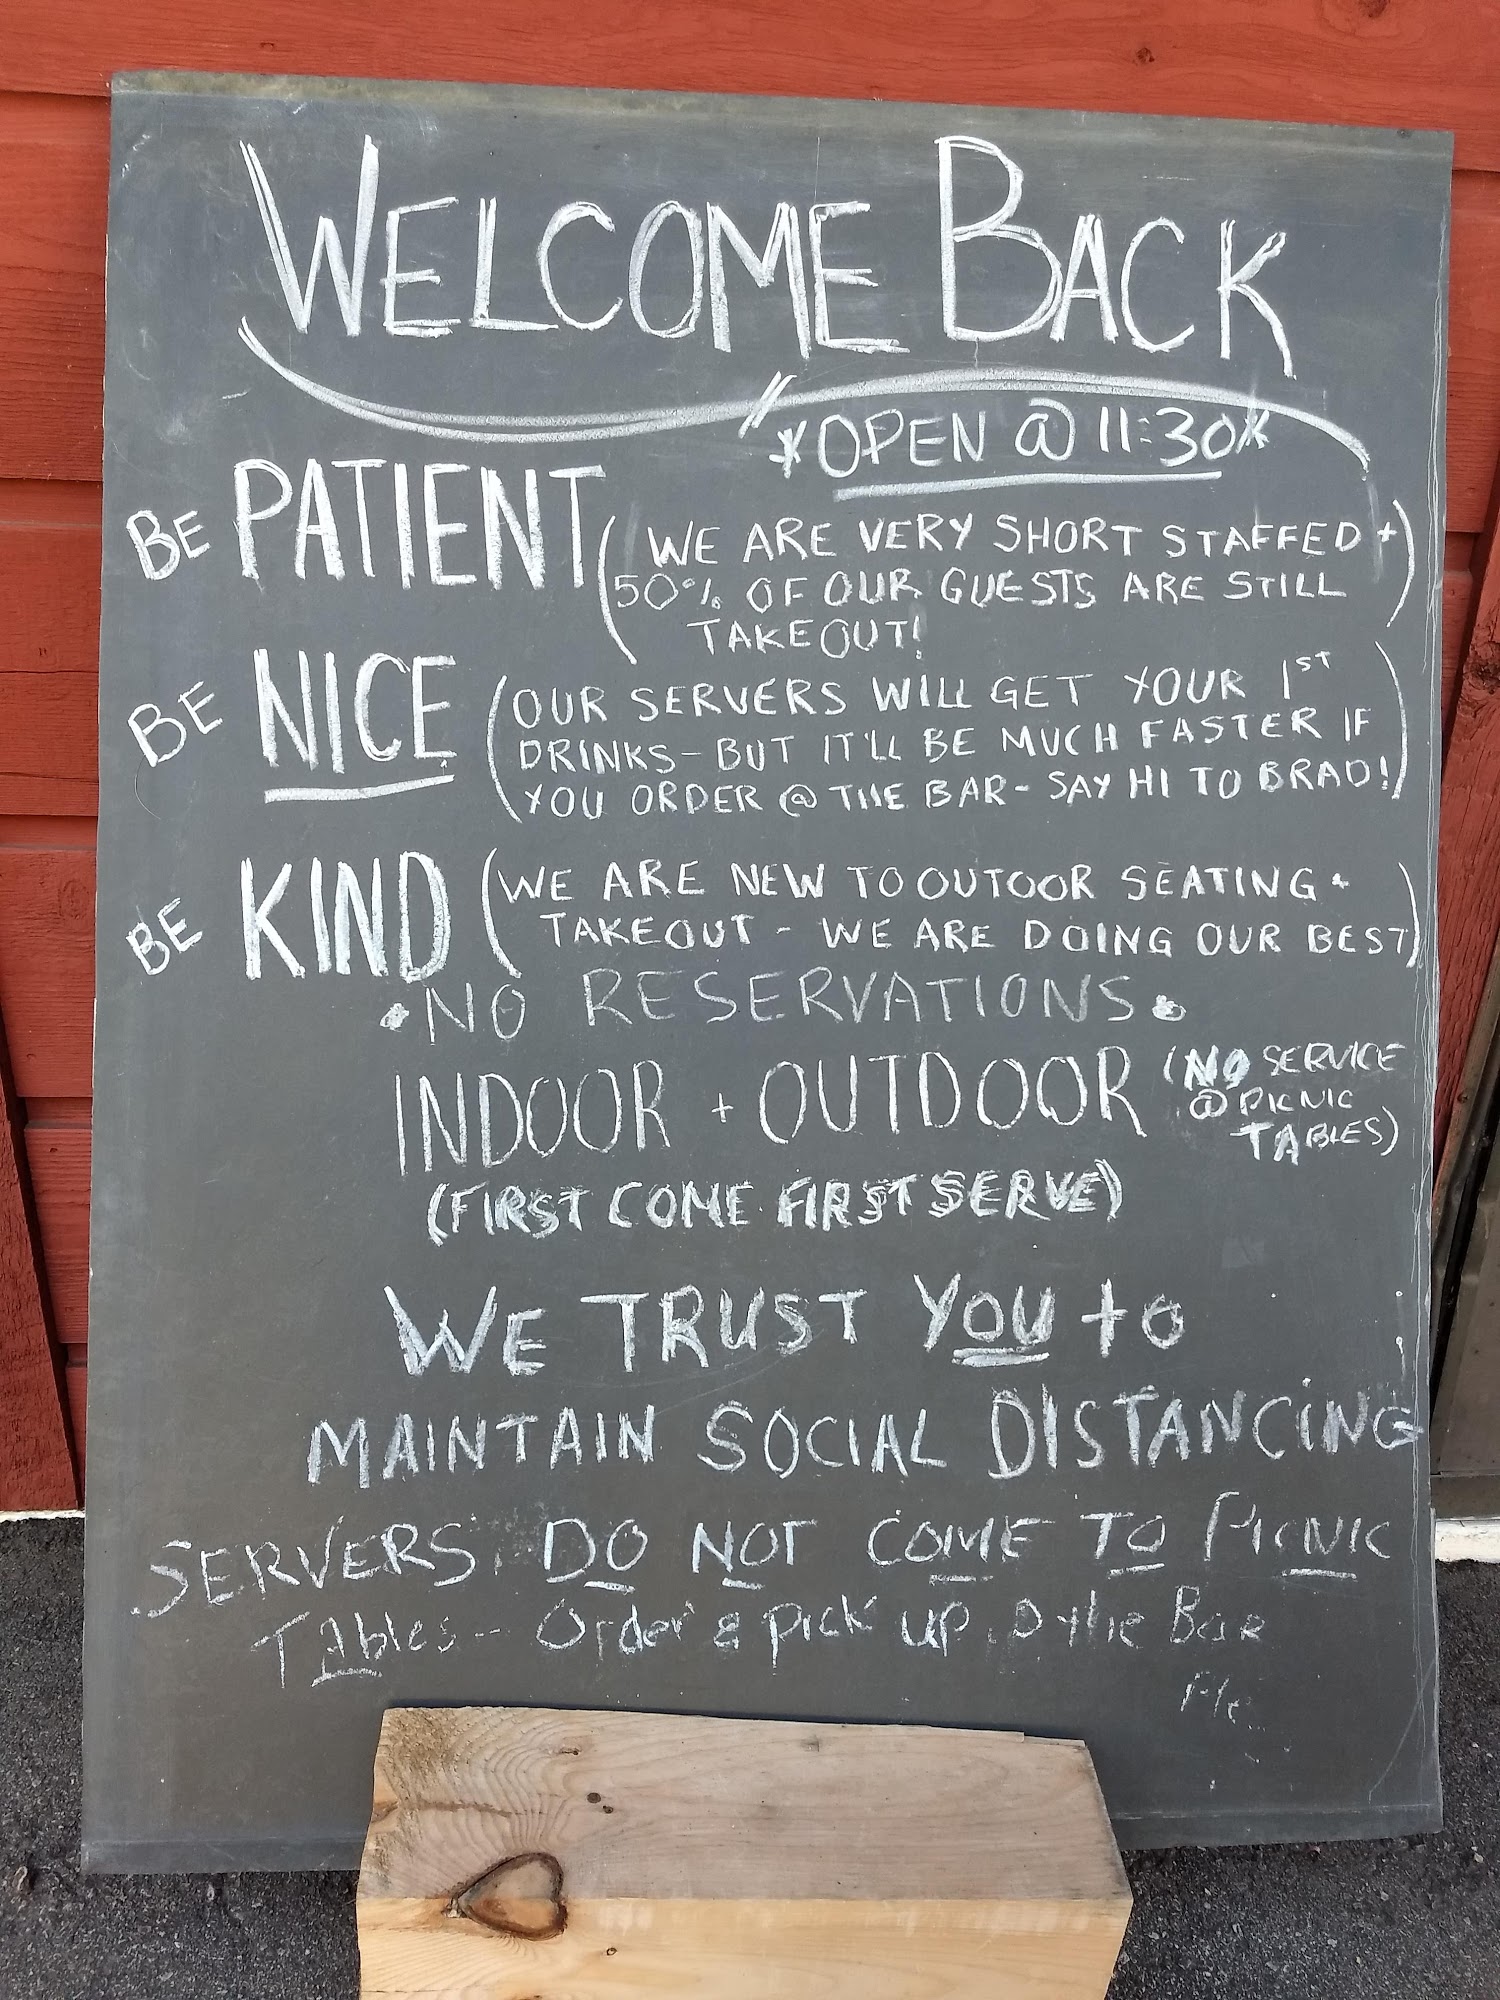 WELCOME BACK
*OPEN @ 11:30*
BE PATIENT (WE ARE VERY SHORT STAFFED +
50% OF OUR GUESTS ARE STILL
TAKEOUT!)
BE NICE (OUR SERVERS WILL GET YOUR 1ST
DRINKS - BUT IT'LL BE MUCH FASTER IF
YOU ORDER @ THE BAR - SAY HI TO BRAD!)
BE KIND (WE ARE NEW TO OUTOOR SEATING +
TAKEOUT - WE ARE DOING OUR BEST)
• NO RESERVATIONS •
INDOOR + OUTDOOR (NO SERVICE
@ PICNIC
TABLES)
(FIRST COME FIRST SERVE)
WE TRUST YOU to
MAINTAIN SOCIAL DISTANCING
SERVERS DO NOT COME TO PICNIC
TAbles -- Order & pick up @ the Bar